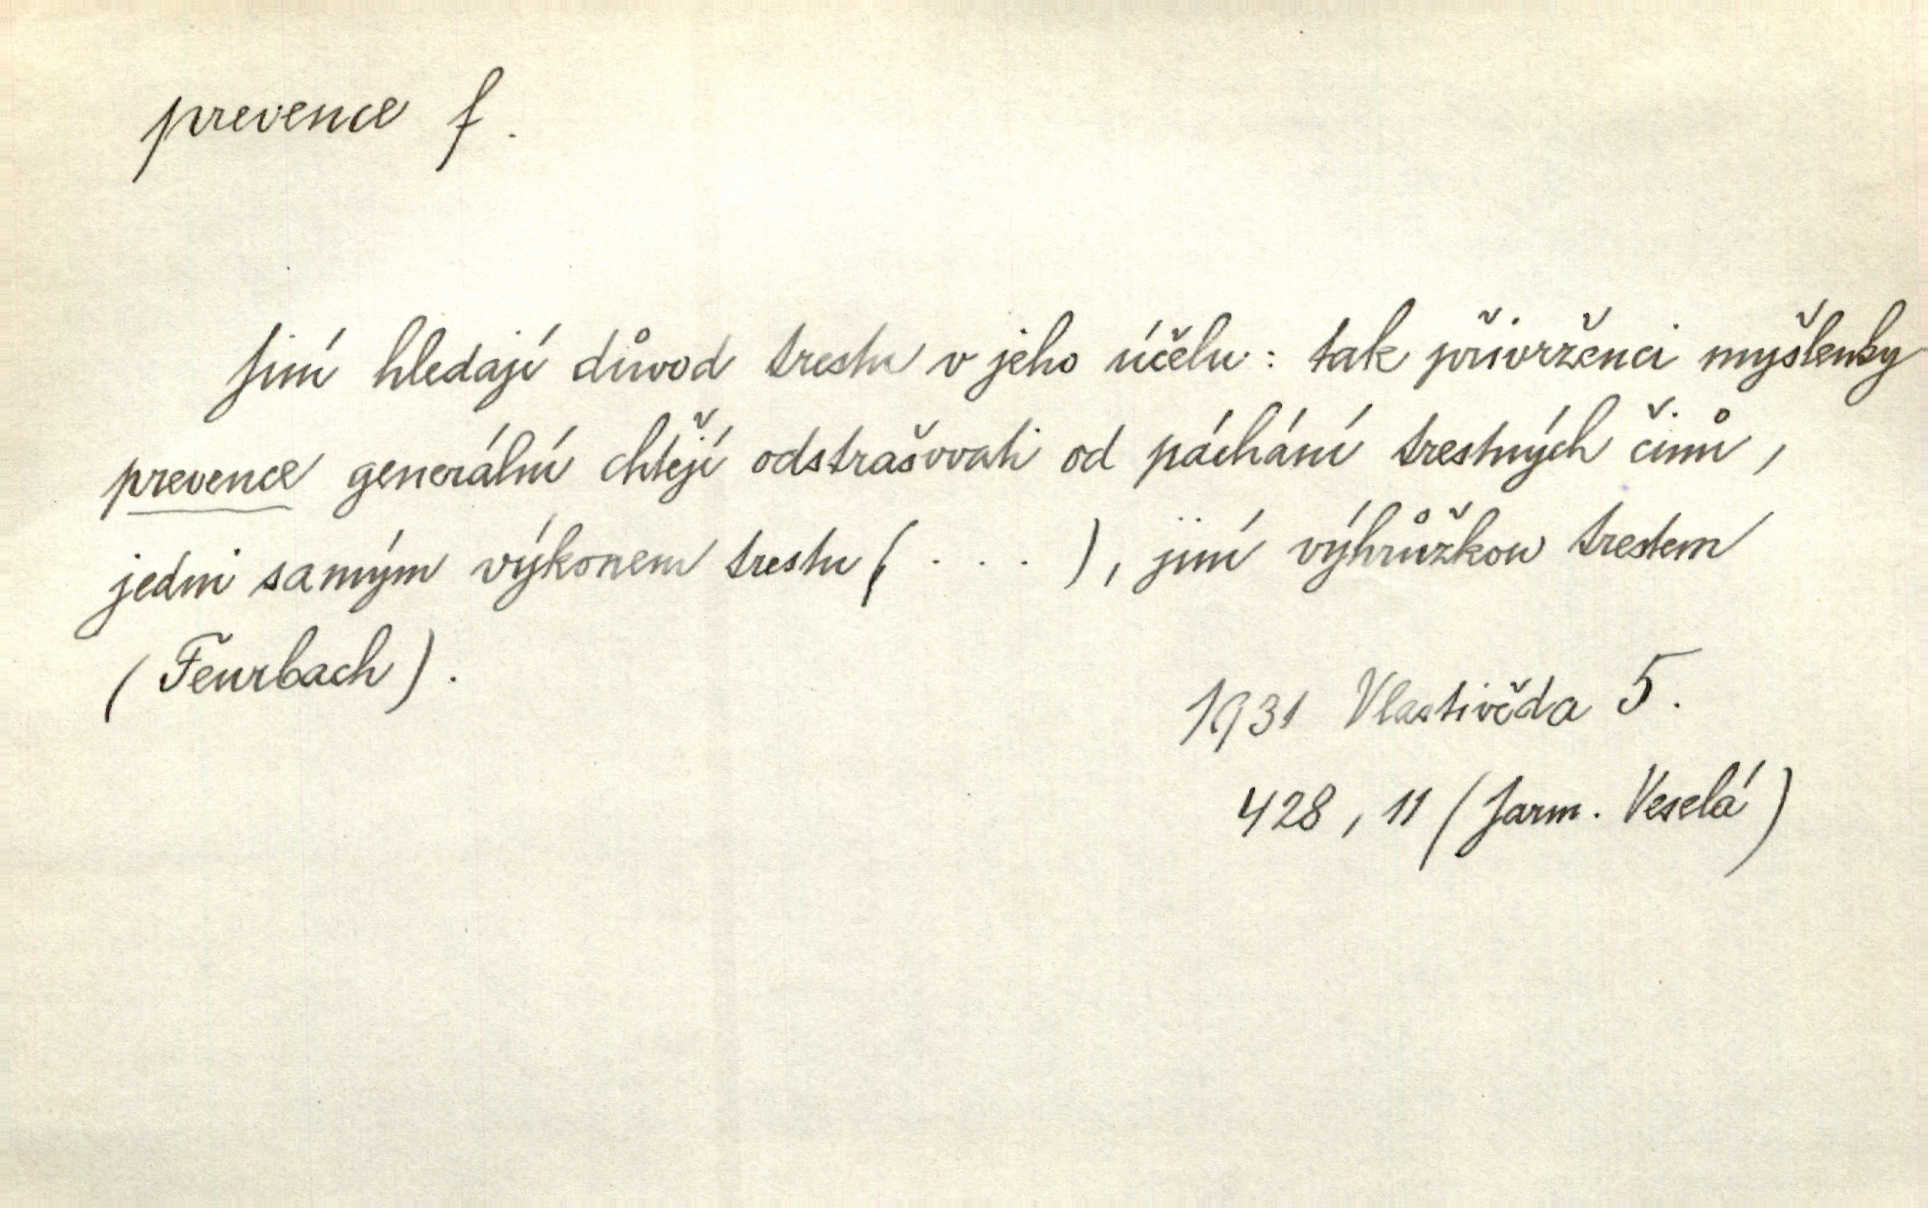 prevence f.
Jiní hledají důvod trestu v jeho účelu: tak přívrženci myšlenky
prevence generální chtějí odstrašovati od páchání trestných činů,
jedni samým výkonem trestu (...), jiní výhrůžkou trestem
(Feurbach).
1931 Vlastivěda 5.
428, 11 (Jarm. Veselá)